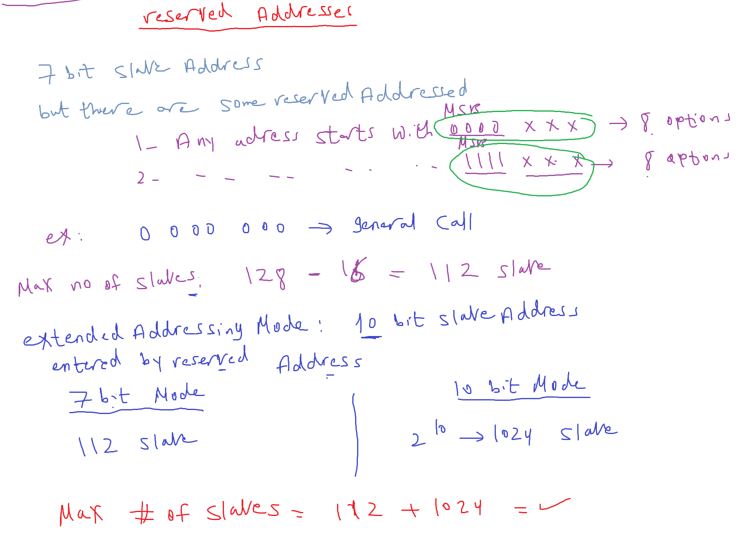 reserved Addresses
7 bit slave Address
but there are some reserved Addressed
MSB
1_ Any adress starts with 0000 x x x → 8 options
MSB
2_ - - -- .. .. .. 1111 x x x → 8 options
ex: 0 000 000 → general call
Max no of slaves. 128 - 16 = 112 slave
extended Addressing Mode: 10 bit slave Address
entered by reserved Address
7 bit Mode
10 bit Mode
112 slave
2^10 → 1024 slave
Max # of slaves = 112 + 1024 = ✓